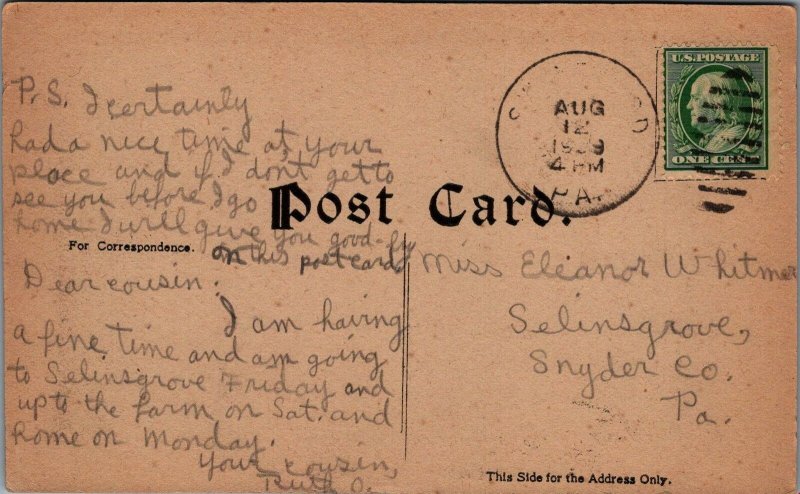 P.S. I certainly
had a nice time at your
place and if I don't get to
see you before I go
home I will give you good-by
on this postcard.
Post Card.
For Correspondence.
Dear cousin:
I am having
a fine time and am going
to Selinsgrove Friday and
up to the farm on Sat. and
home on Monday.
Your cousin,
Ruth O.
AUG
12
4 PM
PA.
U.S. POSTAGE
ONE CENT
Miss Eleanor Whitmer
Selinsgrove,
Snyder Co.
Pa.
This Side for the Address Only.